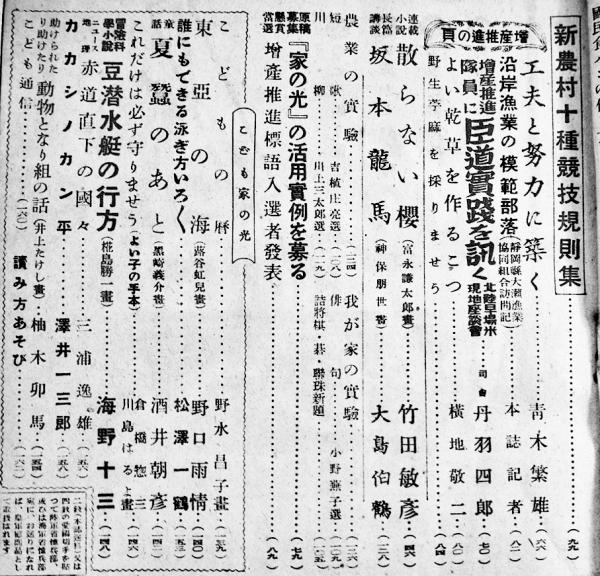 新農村十種競技規則集…(九九)
増産推進の頁
工夫と努力に築く…青木繁雄…(六六)
沿岸漁業の模範部落 静岡縣大瀬漁業協同組合訪問記…本誌記者…(八二)
増産推進隊員に臣道實踐を訊く 北陸早場米現地座談會…司會 丹羽四郎…(七〇)
よい乾草を作るこつ…横地敬二…(八〇)
野生苧麻を採りませう…(八四)
連載小説 散らない櫻(富永謙太郎畫)…竹田敏彦…(四六)
長篇講談 坂本龍馬(神保朋世畫)…大島伯鶴…(三八)
農業の實驗…(三四) 我が家の實驗…(三六)
短歌…吉植庄亮選…(二八) 俳句…小野蕪子選…(二九)
川柳…川上三太郎選…(二九) 詰將棋・碁・聯珠新題…(三五)
原稿募集『家の光』の活用實例を募る…(七九)
懸賞當選 増産推進標語入選者發表…(八九)
こども家の光
こどもの暦…野水昌子畫…(一三九)
東亞の海(蕗谷虹兒畫)…野口雨情…(一四〇)
誰にもできる泳ぎ方いろ〱…松澤一鶴…(一五三)
童話 夏蠶のあと(黒崎義介畫)…酒井朝彦…(一四二)
これだけは必ず守りませう(よい子の手本)…倉橋惣三 川島はるよ畫…(一四六)
冒險科學小説 豆潜水艇の行方(椛島勝一畫)…海野十三…(一四八)
ニュース地理 赤道直下の國々…三浦逸雄…(一五八)
カカシノカン平…澤井一三郎…(一五六)
助けられたり助けたり 動物となり組の話(井上たけし畫)…柚木卯馬…(一五四)
こども通信…(一六〇) 讀み方あそび…(一六二)